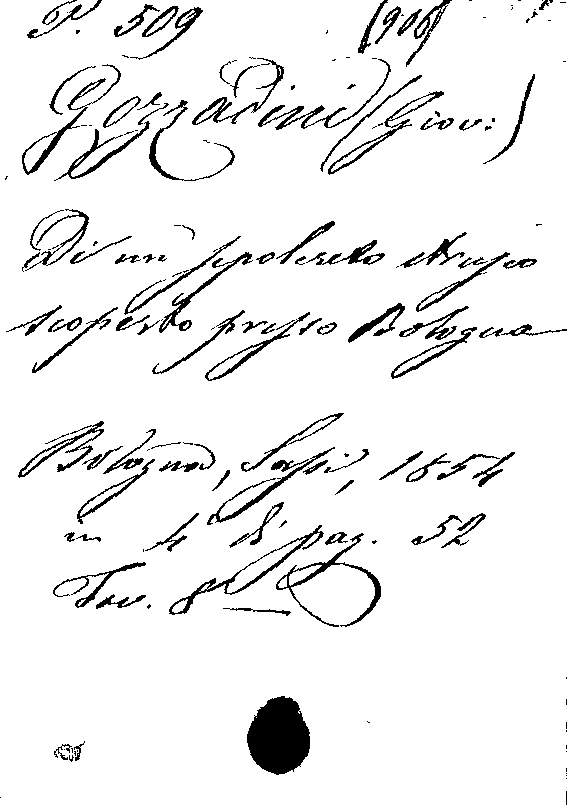 P. 509 (906)
Gozzadini (Giov:)
Di un sepolcreto etrusco
scoperto presso Bologna
Bologna, Sassi, 1854
in 4° di pag. 52
Tav. 8